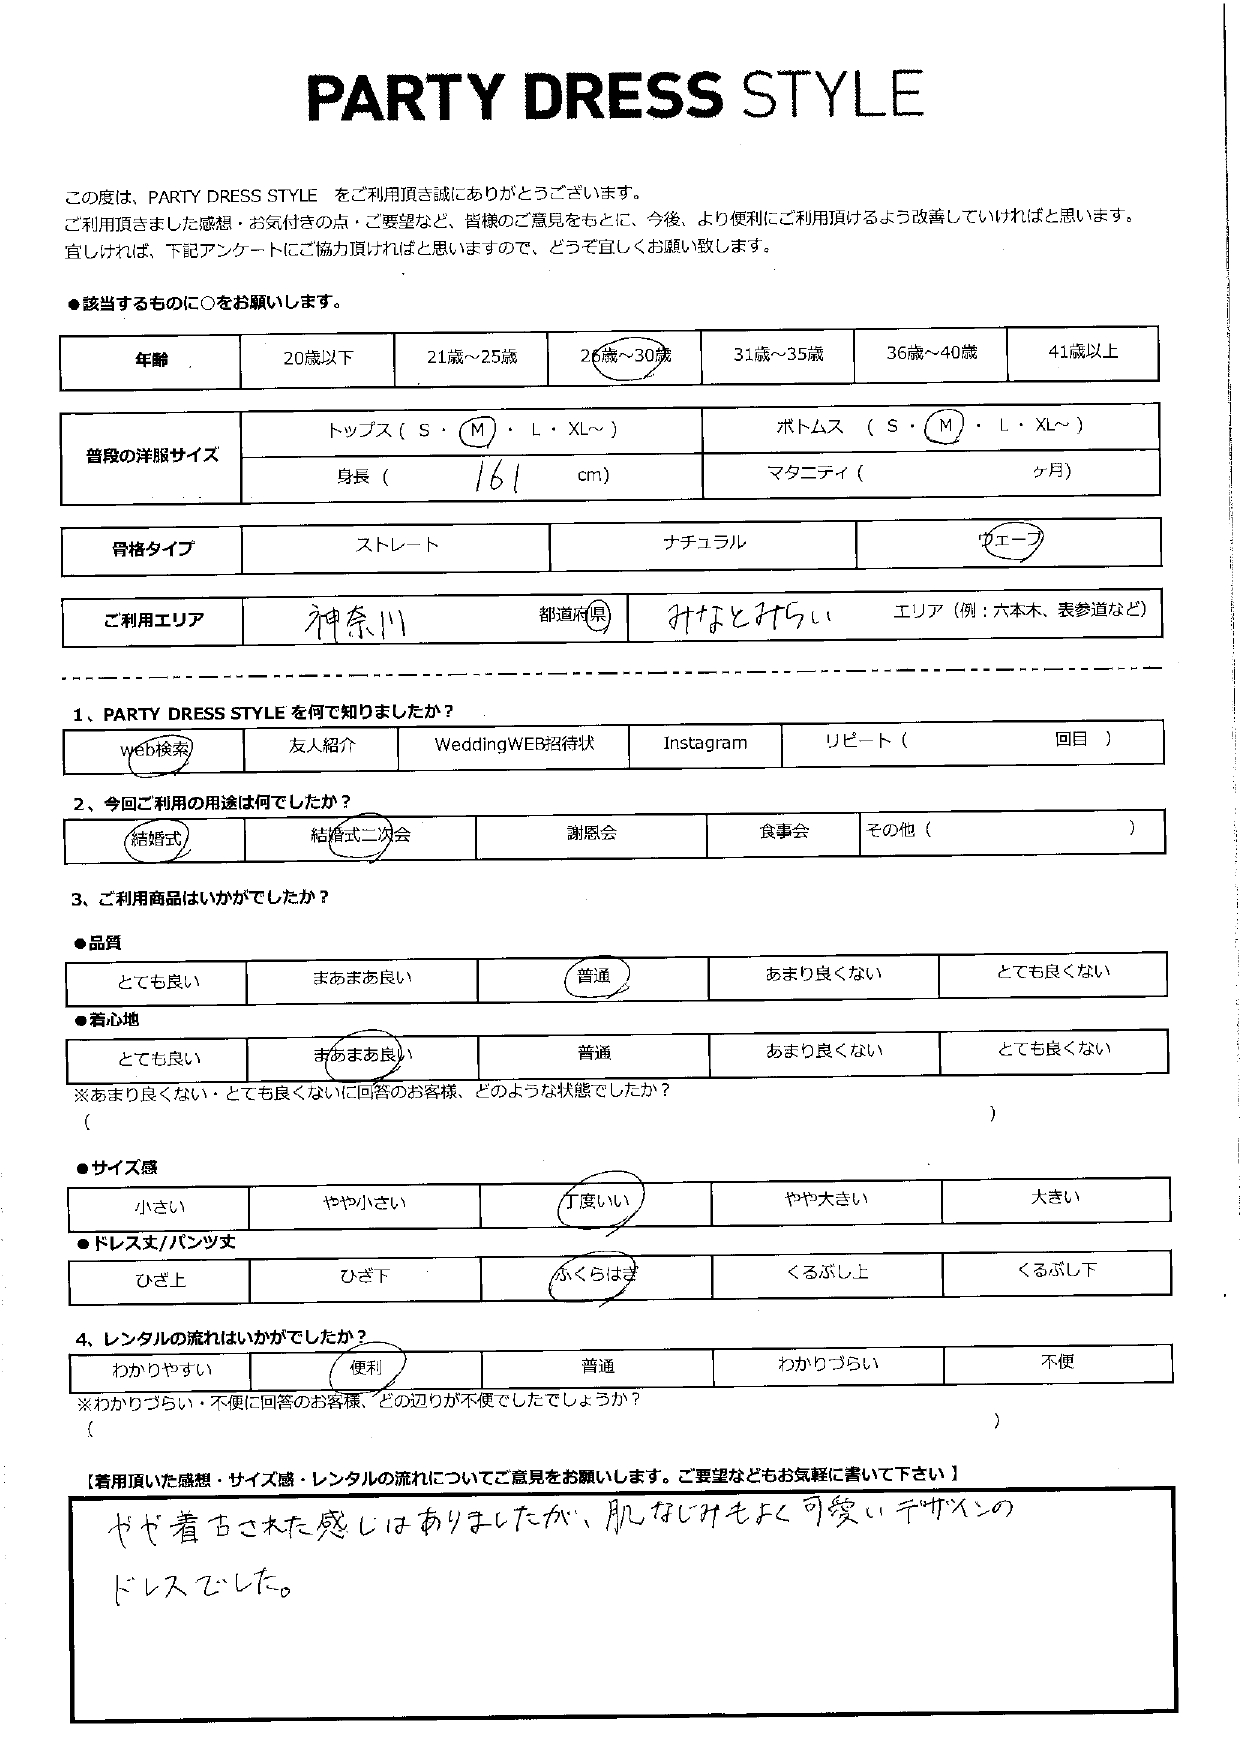 PARTY DRESS STYLE
この度は、PARTY DRESS STYLE をご利用頂き誠にありがとうございます。
ご利用頂きました感想・お気付きの点・ご要望など、皆様のご意見をもとに、今後、より便利にご利用頂けるよう改善していければと思います。
宜しければ、下記アンケートにご協力頂ければと思いますので、どうぞ宜しくお願い致します。
●該当するものに○をお願いします。
年齢 20歳以下 21歳～25歳 26歳～30歳 31歳～35歳 36歳～40歳 41歳以上
普段の洋服サイズ トップス ( S ・ M ・ L ・ XL～ ) ボトムス ( S ・ M ・ L ・ XL～ )
身長 ( 161 cm) マタニティ ( ヶ月)
骨格タイプ ストレート ナチュラル ウェーブ
ご利用エリア 神奈川 都道府県 みなとみらい エリア（例：六本木、表参道など）
1、PARTY DRESS STYLE を何で知りましたか？
web検索 友人紹介 WeddingWEB招待状 Instagram リピート ( 回目 )
2、今回ご利用の用途は何でしたか？
結婚式 結婚式二次会 謝恩会 食事会 その他 ( )
3、ご利用商品はいかがでしたか？
●品質
とても良い まあまあ良い 普通 あまり良くない とても良くない
●着心地
とても良い まあまあ良い 普通 あまり良くない とても良くない
※あまり良くない・とても良くないに回答のお客様、どのような状態でしたか？
( )
●サイズ感
小さい やや小さい 丁度いい やや大きい 大きい
●ドレス丈/パンツ丈
ひざ上 ひざ下 ふくらはぎ くるぶし上 くるぶし下
4、レンタルの流れはいかがでしたか？
わかりやすい 便利 普通 わかりづらい 不便
※わかりづらい・不便に回答のお客様、どの辺りが不便でしたでしょうか？
( )
【着用頂いた感想・サイズ感・レンタルの流れについてご意見をお願いします。ご要望などもお気軽に書いて下さい 】
やや着古された感じはありましたが、肌なじみもよく可愛いデザインの
ドレスでした。